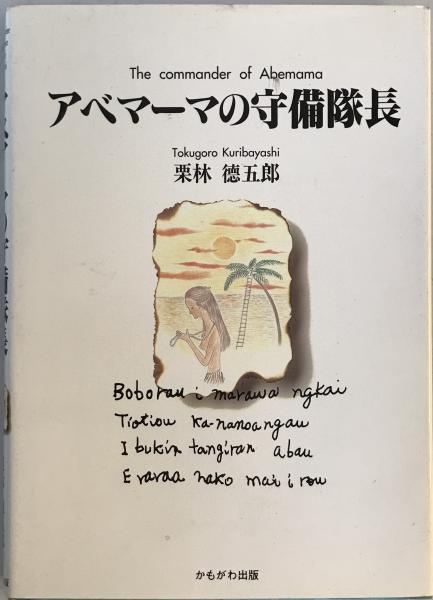 The commander of Abemama
アベマーマの守備隊長
Tokugoro Kuribayashi
栗林 徳五郎
Boborau i marawa ngkai
Tiotiou ka-nanoangau
I bukin tangiran abau
E raraa nako mai i rou
かもがわ出版